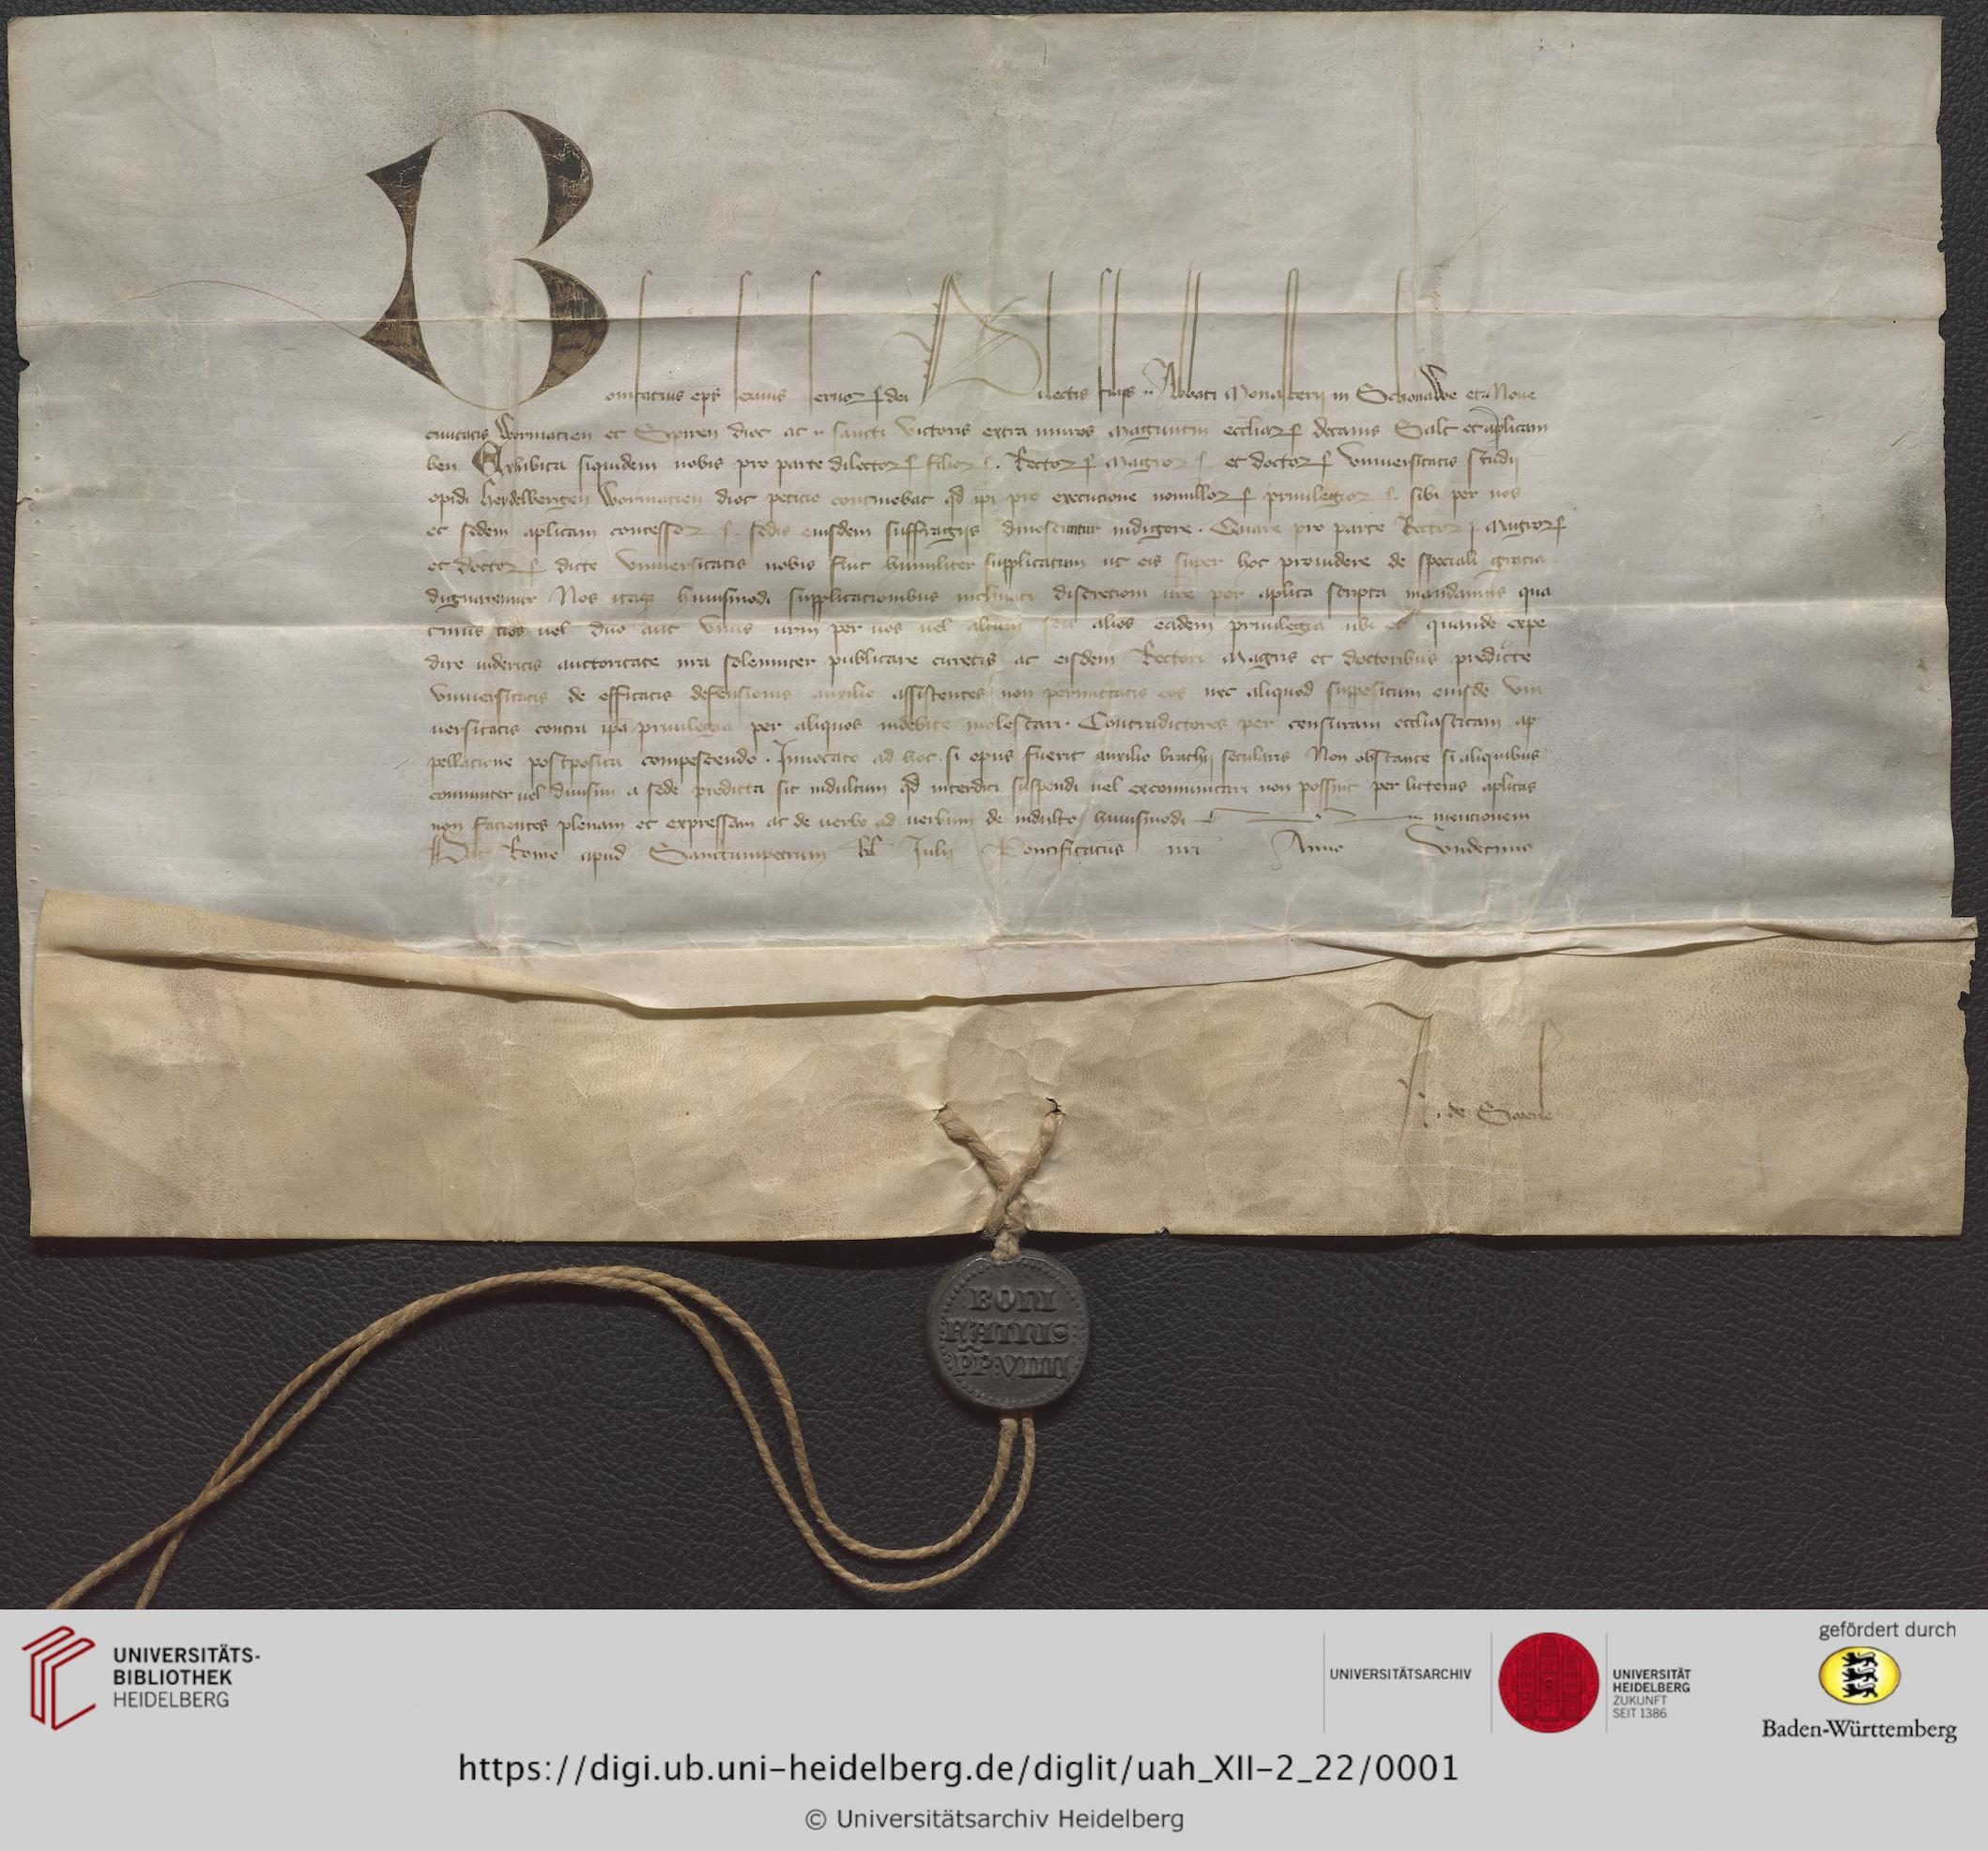 Bonifatius eps servus servor dei Dilectis filiis .. Abbati Monasterii in Schonawe et .. Noue
ciuitatis Wormacien et Spiren dioc ac .. sancti Victoris extra muros Maguntin eccliar decanis Salt et aplicam
ben Exhibita siquidem nobis pro parte dilector filior Rector Magror et doctor Vniuersitatis Studij
opidi Heydelbergen Wormacien dioc peticio continebat qd ipi pro executione nonnullor priuilegior sibi per nos
et sedem aplicam concessor sedis eiusdem suffragijs dinoscuntur indigere . Quare pro parte Rector Magror
et doctor dicte Vniuersitatis nobis fuit humiliter supplicatum ut eis super hoc prouidere de speciali gracia
dignaremur Nos itaqz huiusmodi supplicationibus inclinati discretioni ure per aplica scripta mandamus qua
tinus uos uel duo aut Vnus urm per uos uel alium seu alios eadem priuilegia ubi et quando expe
dire uideritis auctoritate nra solenniter publicare curetis ac eisdem Rectori Magris et doctoribus predicte
Vniuersitatis de efficacis defensionis auxilio assistentes non permittatis eos nec aliquod suppositum eiusde Vni
uersitatis contra ipa priuilegia per aliquos indebite molestari . Contradictores per censuram eccliasticam ap
pellatione postposita compescendo . Inuocato ad hoc si opus fuerit auxilio brachij secularis Non obstante si aliquibus
communiter uel diuisim a sede predicta sit indultum qd interdici suspendi uel excommunicari non possint per litteras aplicas
non facientes plenam et expressam ac de uerbo ad uerbum de indulto huiusmodi mentionem
Dat Rome apud Sanctumpetrum kl Julij Pontificatus nri Anno Vndecimo
de
BONI
FATIUS
PP:VIIII
UNIVERSITÄTS-
BIBLIOTHEK
HEIDELBERG
UNIVERSITÄTSARCHIV
UNIVERSITÄT
HEIDELBERG
ZUKUNFT
SEIT 1386
gefördert durch
Baden-Württemberg
https://digi.ub.uni-heidelberg.de/diglit/uah_XII-2_22/0001
© Universitätsarchiv Heidelberg